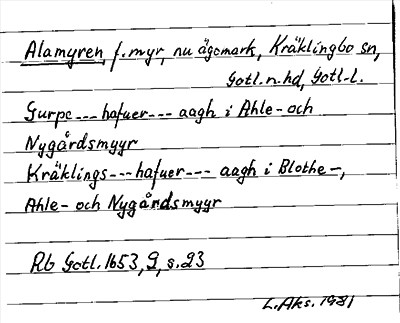 Alamyren, f. myr, nu ägomark, Kräklingbo sn,
Gotl. n. hd, Gotl. l.
Gurpe --- hafuer --- aagh i Ahle- och
Nygårdsmyyr
Kräklings --- hafuer --- aagh i Blothe-,
Ahle- och Nygårdsmyyr
Rb Gotl. 1653, 9, s. 23
L. Aks. 1981